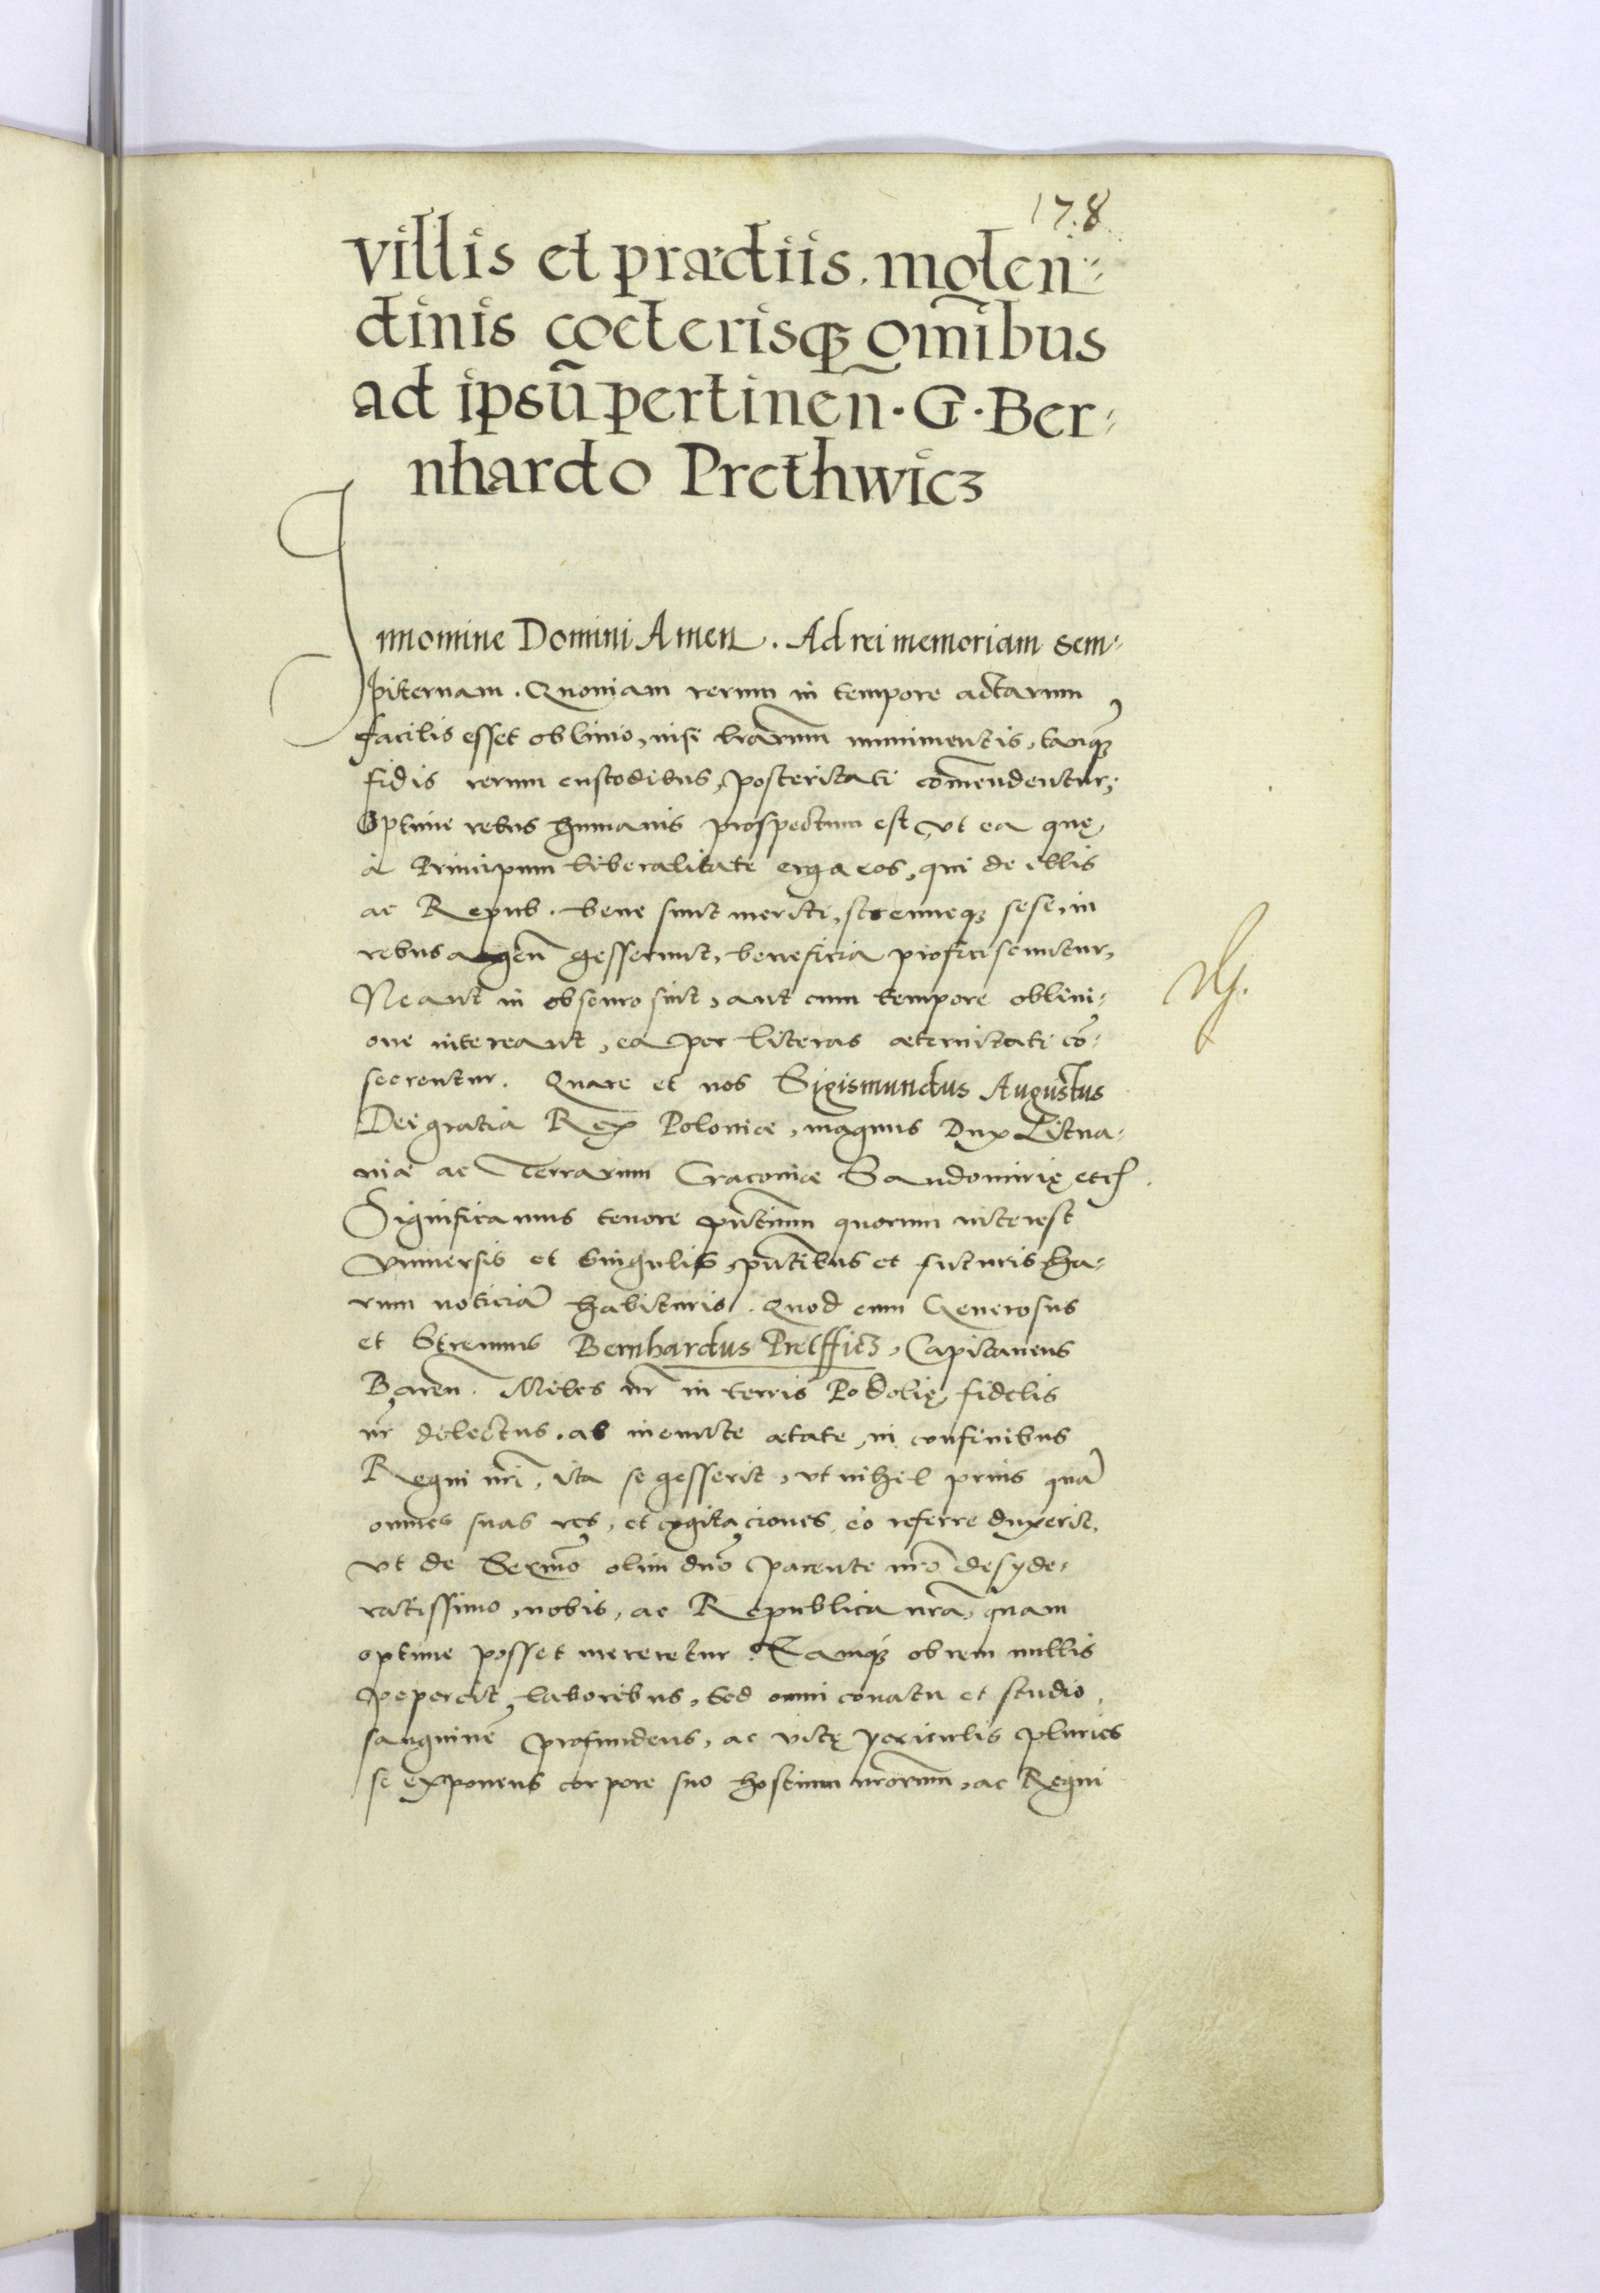 178
villis et prædiis, molen-
dinis cœterisq; om̄ibus
ad ipsū pertinen̄. G. Ber-
nhardo Prethwicz
In nomine Domini Amen. Ad rei memoriam sem-
piternam. Quoniam rerum in tempore actarum
facilis esset oblivio, nisi l̄rarum munimentis, tanq̄
fidis rerum custodibus, posteritati com̄endentur,
Optime rebus humanis prospectum est, ut ea quę
à Principum liberalitate erga eos, qui de illis
ac Repub. bene sunt meriti, strenueq; sese, in
rebus agen̄ gesserunt, beneficia proficiscuntur,
Ne aut in obscuro sint, aut cum tempore oblivi-
one intereant, ea per literas æternitati cō-
secrentur. Quare et nos Sigismundus Augustus
Dei gratia Rex Poloniæ, magnus Dux Litua-
niæ ac Terrarum Cracoviæ Sandomirię etc.
Significamus tenore pn̄tium quorum interest
universis et singulis, pn̄tibus et futuris ha-
rum noticiā habituris. Quod cum Generosus
et Strenuus Bernhardus Pretfficz, Capitaneus
Baren. Miles nr̄ in terris Podolię, fidelis
nr̄ dilectus, ab ineunte ætate, in confinibus
Regni nr̄i, ita se gesserit, ut nihil prius quā
omnes suas res, et cogitaciones, eo referre duxerit,
ut de Sermō olim dnō parente nr̄o desyde-
ratissimo, nobis, ac Republica nr̄a, quam
optime posset mereretur. Eamq; ob rem nullis
pepercit laboribus, sed omni conatu et studio,
sanguinē profundens, ac vitę periculis pluries
se exponens corpore suo hostium nr̄orum, ac Regni